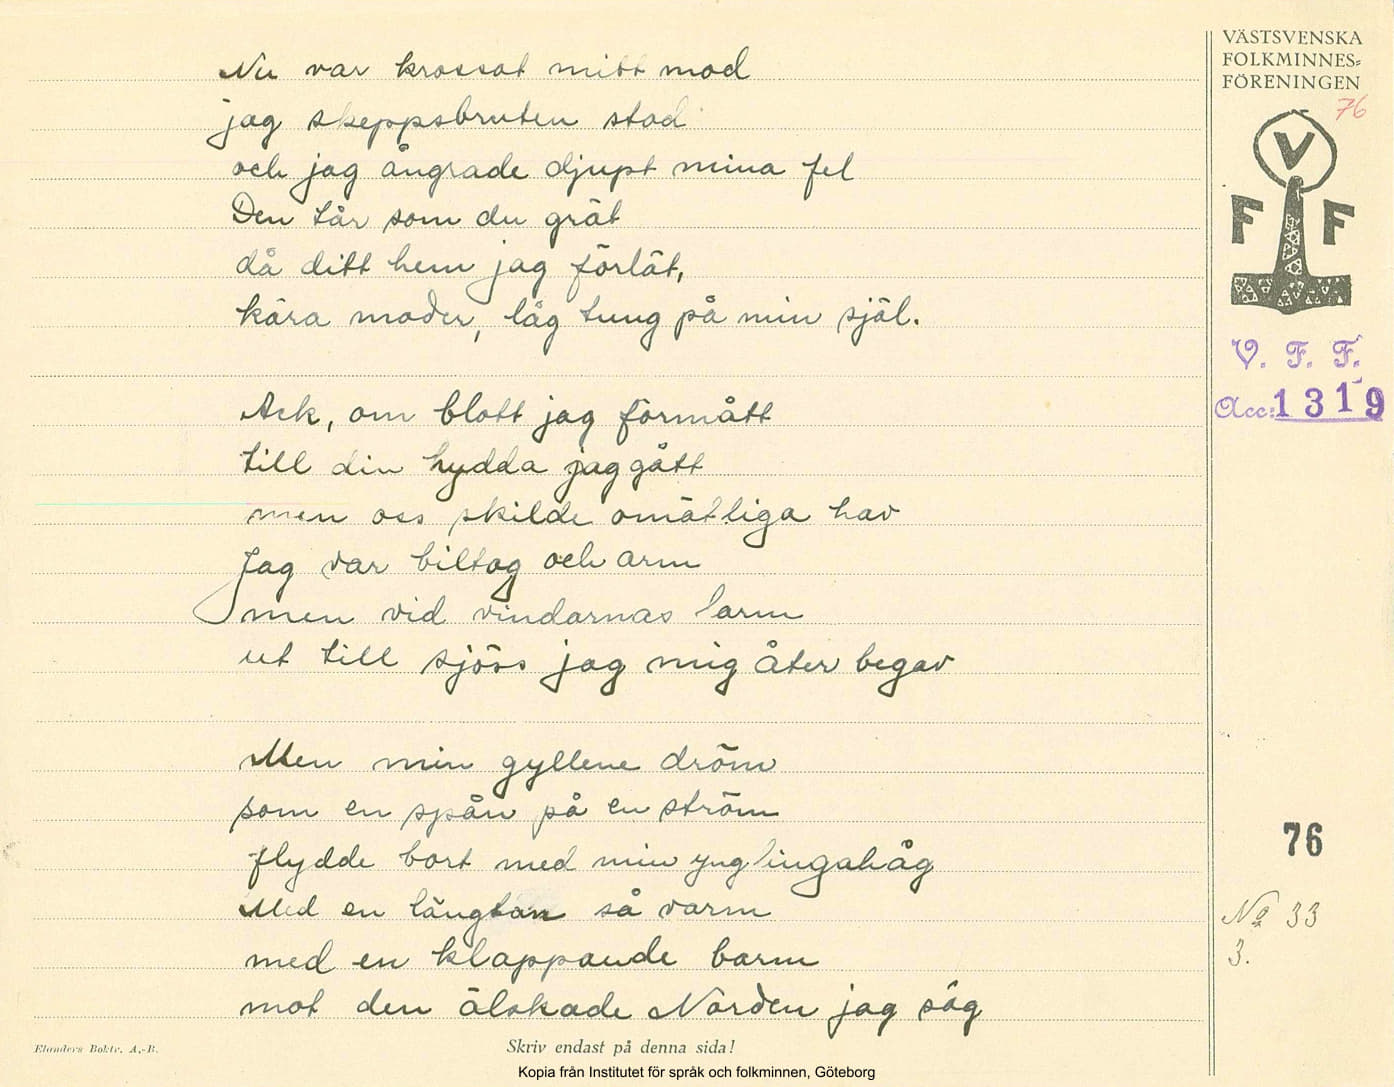 Nu var krossat mitt mod
jag skeppsbruten stod
och jag ångrade djupt mina fel
Den tår som du grät
då ditt hem jag förlät,
kära moder, låg tung på min själ.
Ack, om blott jag förmått
till din hydda jag gått
men oss skilde omätliga hav
Jag var biltog och arm
men vid vindarnas larm
ut till sjöss jag mig åter begav
Men min gyllene dröm
som en spån på en ström
flydde bort med min ynglingahåg
Med en längtan så varm
med en klappande barm
mot den älskade Norden jag såg
VÄSTSVENSKA
FOLKMINNES=
FÖRENINGEN
76
V
F F
V. F. F.
Acc: 1319
76
No 33
3.
Elanders Boktr. A.-B.
Skriv endast på denna sida!
Kopia från Institutet för språk och folkminnen, Göteborg